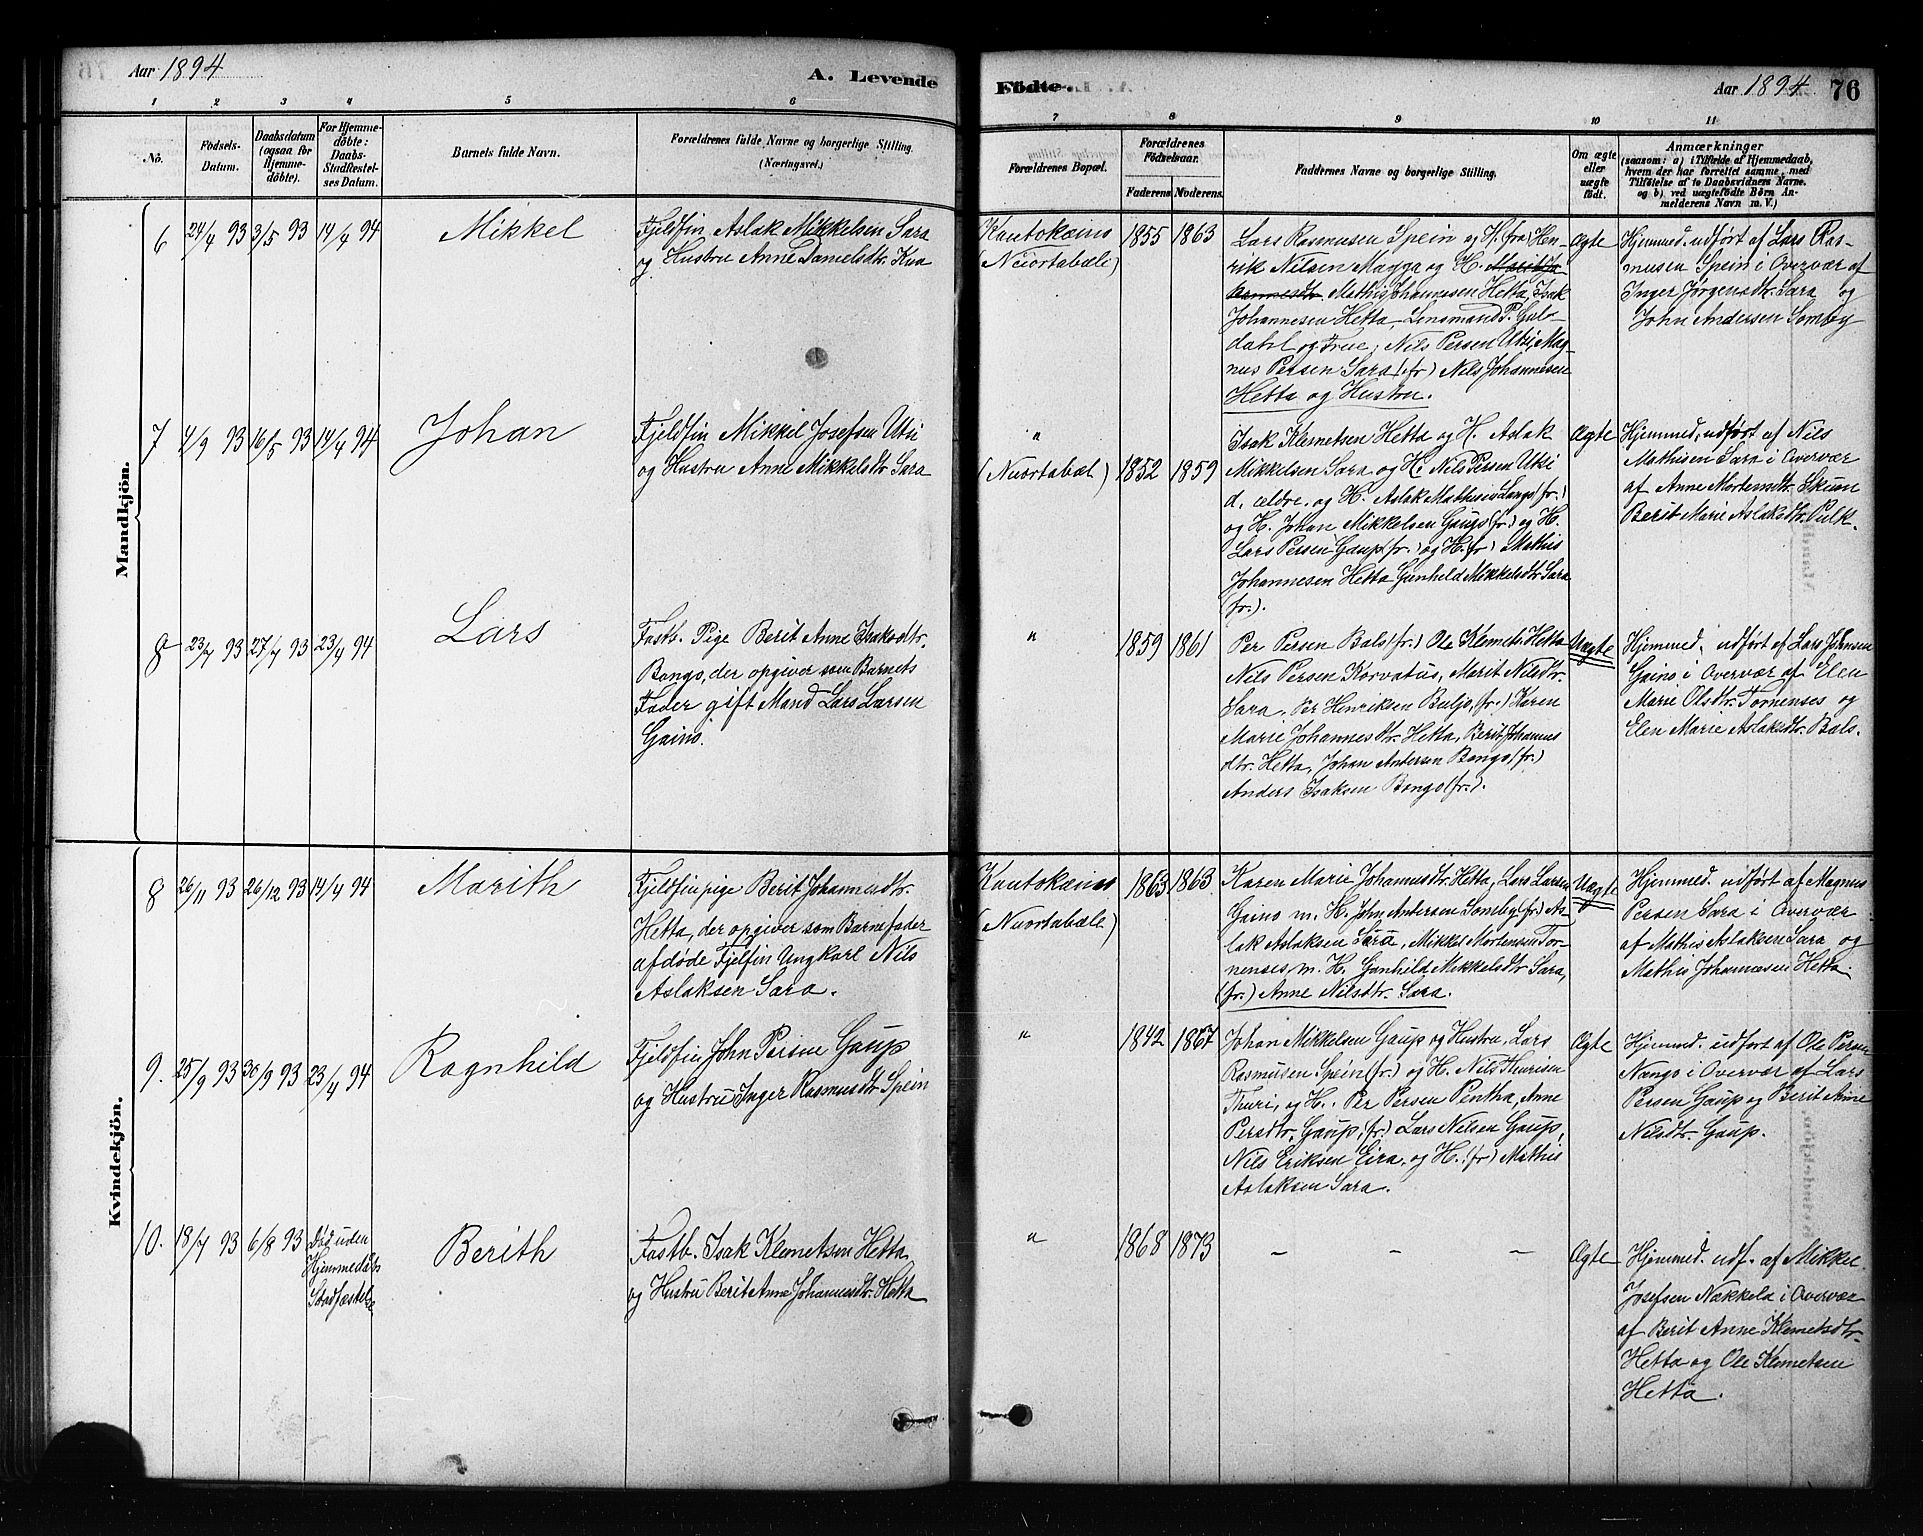 Aar 1894
A. Levende
1 2 3 4 5 6
No.
Födsels-
Datum.
Daabsdatum
(ogsaa for
Hjemme-
döbte).
For Hjemme-
döbte:
Daabs-
Stadfæstel-
ses Datum.
Barnets fulde Navn.
Forældrenes fulde Navne og borgerlige Stilling
(Næringsvei.)
Mandkjön.
6 24/4 93 3/5 93 14/4 94 Mikkel
Fjeldfin Aslak Mikkelsen Sara
og Hustru Anne Danielsdtr.
7 4/9 93 16/5 93 14/4 94 Johan
Fjeldfin Mikkil Josefsen Utsi
og Hustru Anne Mikkelsdtr Sara
8 23/7 93 27/7 93 23/4 94 Lars
Fastb. Pige Berit Anne Isaksdtr.
Bongo, der opgiver som Barnets
Fader gift Mand Lars Larsen
Gaino.
Kvindekjön.
8 26/11 93 26/12 93 14/4 94 Marith
Fjeldfinpige Berit Johannesdtr.
Hetta, der opgiver som Barnefader
afdøde Fjelfin Ungkarl Nils
Aslaksen Sara.
9. 25/9 93 30/9 93 23/4 94 Ragnhild
Fjeldfin John Persen Gaup
og Hustru Inger Rasmusdtr Spein
10. 18/7 93 6/8 93 Død uden
Hjemmedåbs
Stadfæstelse
Berith
Fastb. Isak Klemetsen Hetta
og Hustru Berit Anne Johannesdtr. Hetta
Födte.
Aar 1894 76
7 8 9 10 11
Forældrenes Bopæl.
Forældrenes
Födselsaar.
Faderens. Moderens.
Faddernes Navne og borgerlige Stilling.
Om ægte
eller
uægte
födt.
Anmærkninger
(saasom: a) i Tilfælde af Hjemmedaab,
hvem der har forrettet samme, med
Tilföielse af to Daabsvidners Navne.
og b) ved uægtefödte Börn An-
melderens Navn m. V.)
Kautokeino
(Nuortabæli)
1855 1863
Lars Rasmusen Spein og H. (fra) Hen-
rik Nilsen Magga og H. Marit Jo
hannesdtr Mathis Johannesen Hetta, Isak
Johannesen Hetta, Lensmand P. Gul-
dahl og Frue, Nils Persen Utsi, Mag-
nus Persen Sara (fr) Nils Johannesen
Hetta og Hustru.
Ægte
Hjemmed. udført af Lars Ras-
musen Spein i Overvær af
Inger Jørgensdtr. Sara og
John Andersen Somby
"
(Nuortabæl) 1852 1859
Isak Klemetsen Hetta og H. Aslak
Mikkelsen Sara og H. Nils Persen Utsi
d. ældre, og H. Aslak Mathisen Lango (fr.)
og H. Johan Mikkelsen Gaup (fr.) og H.
Lars Persen Gaup (fr.) og H. (fr) Mathis
Johannesen Hetta Gunhild Mikkelsdtr Sara
(fr.).
Ægte
Hjemmed. udført af Nils
Mathisen Sara i Overvær
af Anne Mortensdtr. Skum
Berit Marie Aslaksdtr. Pulk.
" 1859 1861
Per Persen Bals (fr.) Ole Klemets. Hetta
Nils Persen Korvatus, Marit Nilsdtr.
Sara, Per Henriksen Buljo, (fr.) Karen
Marie Johannesdtr. Hetta, Berit Johannes
dtr. Hetta, Johan Andersen Bongo (fr.)
Anders Isaksen Bongo (fr.).
Uægte
Hjemmed. udført af Lars Johnsen
Gaino i Overvær af Elen
Marie Olsdtr. Tornenses og
Elen Marie Aslaksdtr. Bals.
Kautokeino
(Nuortabæli)
1863 1863
Karen Marie Johannesdtr. Hetta, Lars Larsen
Gaino m. H. John Andersen Somby (fr) As-
lak Aslaksen Sara, Mikkel Mortensen Tor-
nenses, m. H. Gunhild Mikkelsdtr Sara,
(fr.) Anne Nilsdtr. Sara.
Uægte
Hjemmed. udført af Magnus
Persen Sara i Overvær
af Mathis Aslaksen Sara og
Mathis Johannesen Hetta.
" 1842 1867
Johan Mikkelsen Gaup og Hustru, Lars
Rasmusen Spein (fr.) og H. Nils Thurisen
Thuri, og H. Per Persen Pentha, Anne
Persdtr. Gaup, (fr.) Lars Nilsen Gaup,
Nils Eriksen Eira, og H. (fr) Mathis
Aslaksen Sara.
Ægte
Hjemmed. udført af Ole Persen
Nango i Overvær af Lars
Persen Gaup og Berit Anne
Nilsdtr. Gaup.
" 1868 1873
– – –
Ægte
Hjemmed. udf. af Mikkel
Josefsen Nækkela i Overvær
af Berit Anne Klemetsdtr.
Hetta og Ole Klemetsen
Hetta.